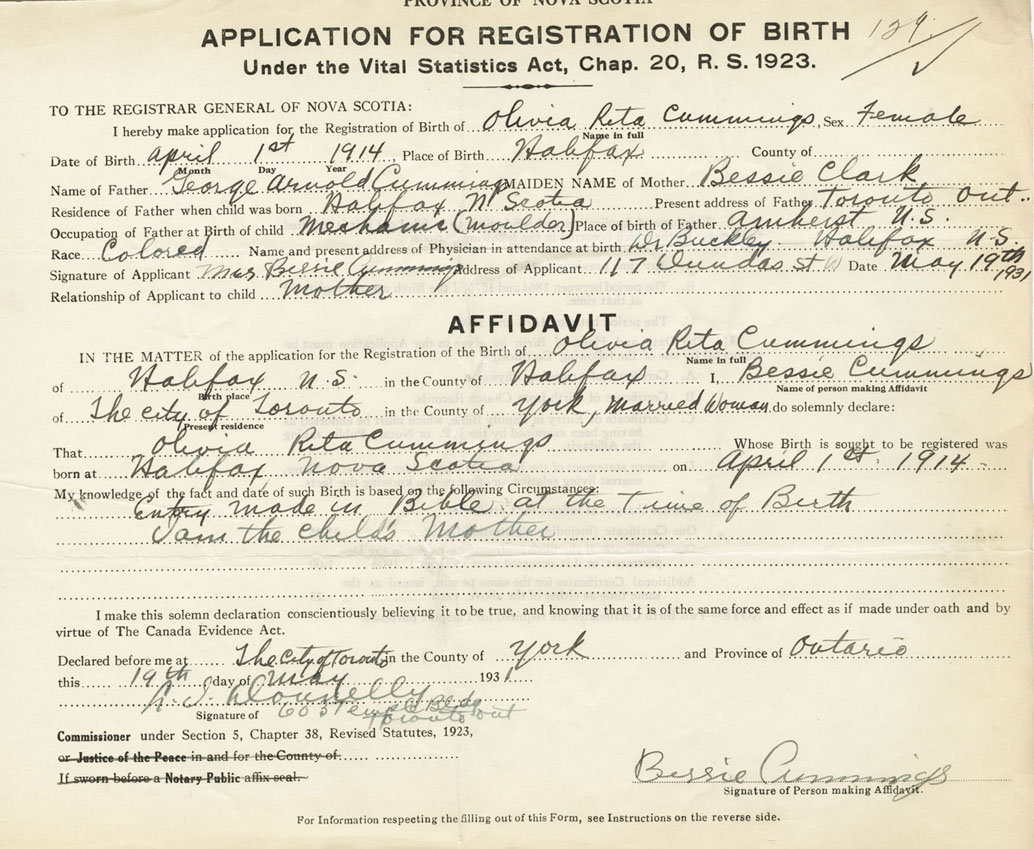 PROVINCE OF NOVA SCOTIA
APPLICATION FOR REGISTRATION OF BIRTH 129.
Under the Vital Statistics Act, Chap. 20, R. S. 1923.
TO THE REGISTRAR GENERAL OF NOVA SCOTIA:
I hereby make application for the Registration of Birth of Olivia Rita Cummings, Sex Female
Name in full
Date of Birth April 1st 1914, Place of Birth Halifax County of
Month Day Year
Name of Father George Arnold Cummings MAIDEN NAME of Mother Bessie Clark
Residence of Father when child was born Halifax N Scotia Present address of Father Toronto Ont.
Occupation of Father at Birth of child Mechanic (Moulder) Place of birth of Father Amherst N.S.
Race Colored Name and present address of Physician in attendance at birth Dr Buckley Halifax N.S.
Signature of Applicant Mrs Bessie Cummings Address of Applicant 117 Dundas St W Date May 19th 1931
Relationship of Applicant to child Mother
AFFIDAVIT
IN THE MATTER of the application for the Registration of the Birth of Olivia Rita Cummings
Name in full
of Halifax N.S. in the County of Halifax I, Bessie Cummings
Birth place Name of person making Affidavit
of The city of Toronto in the County of York, Married Woman do solemnly declare:
Present residence
That Olivia Rita Cummings Whose Birth is sought to be registered was
born at Halifax Nova Scotia on April 1st. 1914
My knowledge of the fact and date of such Birth is based on the following Circumstances:
Entry made in Bible at the time of Birth
I am the child's Mother
I make this solemn declaration conscientiously believing it to be true, and knowing that it is of the same force and effect as if made under oath and by
virtue of The Canada Evidence Act.
Declared before me at The City of Toronto in the County of York and Province of Ontario
this 19th day of May 1931
Donnelly
Signature of 603 Temple Bldg
Toronto Ont
Commissioner under Section 5, Chapter 38, Revised Statutes, 1923,
or Justice of the Peace in and for the County of:
If sworn before a Notary Public affix seal.
Bessie Cummings
Signature of Person making Affidavit.
For Information respecting the filling out of this Form, see Instructions on the reverse side.